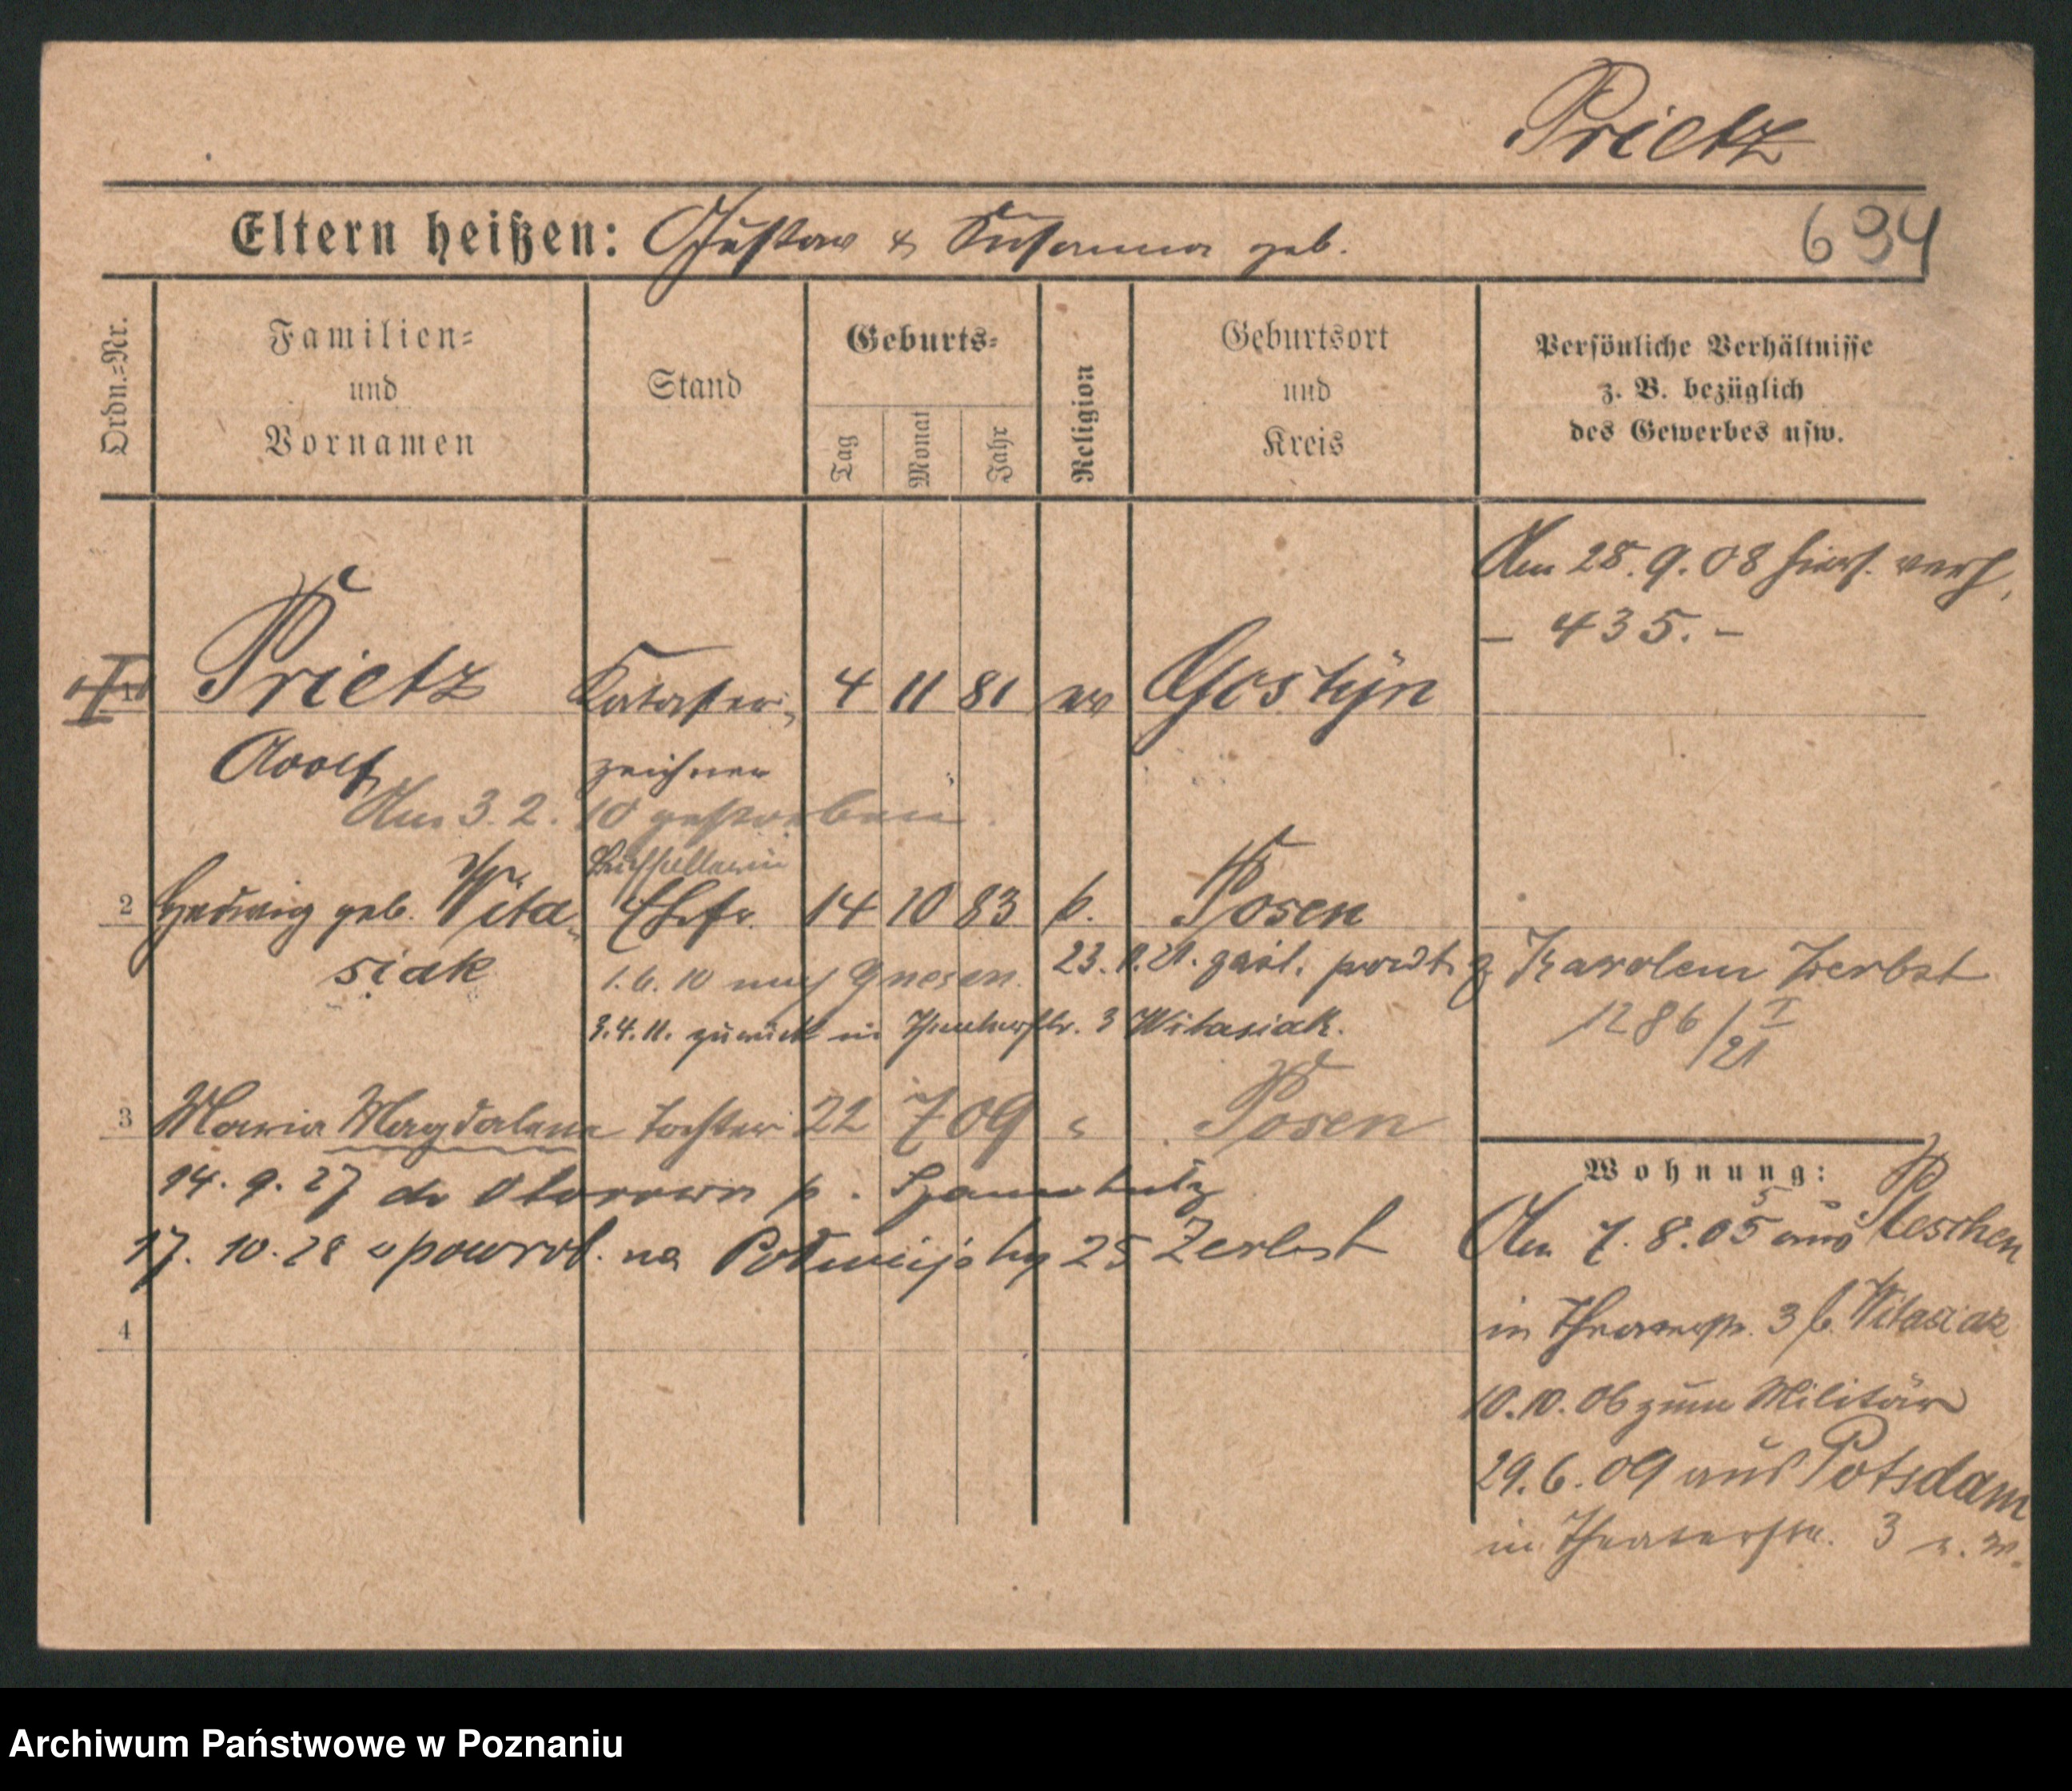 Prietz
Eltern heißen: Gustav & Susanna geb.
694
Ordn.-Nr.
Familien-
und
Vornamen
Stand
Geburts-
Tag
Monat
Jahr
Religion
Geburtsort
und
Kreis
Persönliche Verhältnisse
z. B. bezüglich
des Gewerbes usw.
Am 28.9.08 hiers. verh.
- 435. -
1 Prietz Kataster- 4 11 81 ev Gostyn
Adolf zeichner
Am 3.2.10 gestorben.
Buchhalterin
2 Hedwig geb. Wita- Ehefr. 14 10 83 k. Posen
siak
1.6.10 nach Gnesen. 23. 11. 21. z Karolem Zerbst
3.4.11. zurück in 3 Witasiak.
1286/I 21
3 Maria Magdalena Tochter 22 7 09 " Posen
14. 9. 27 do Otorowa p.
17. 10. 28 powrot. na 25 Zerbst
Wohnung:
Am 7.8.05 aus Pleschen
5
in 3 b. Witasiak
10.10.06 zum Militär
29.6.09 aus Potsdam
in Theaterstr. 3
4
Archiwum Państwowe w Poznaniu